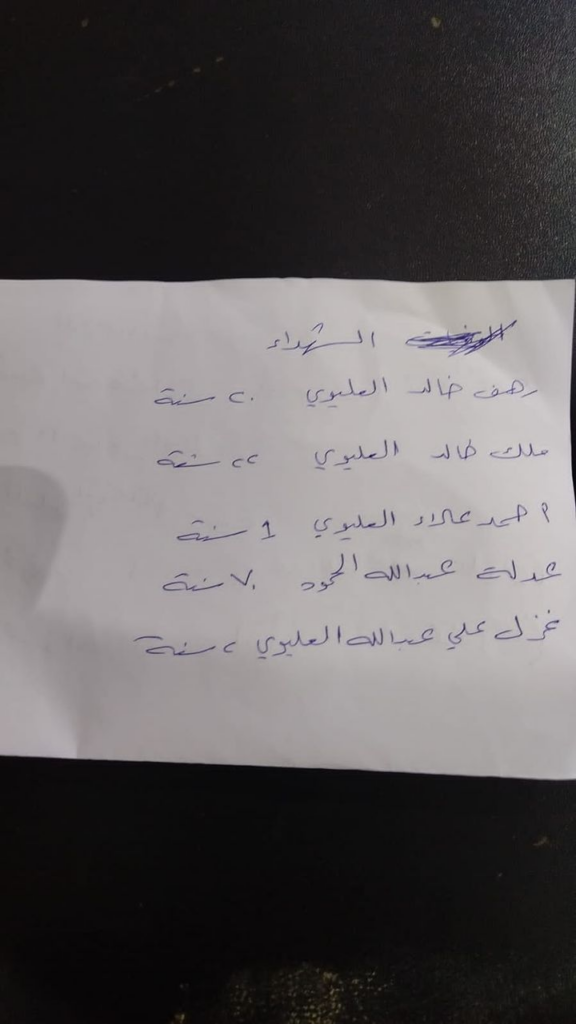 الشهداء
رهف خالد العليوي ٢٠ سنة
ملك خالد العليوي ٢٢ سنة
محمد علاء العليوي 1 سنة
عدلة عبدالله الحمود ٧٠ سنة
غزل علي عبدالله العليوي ٢ سنة